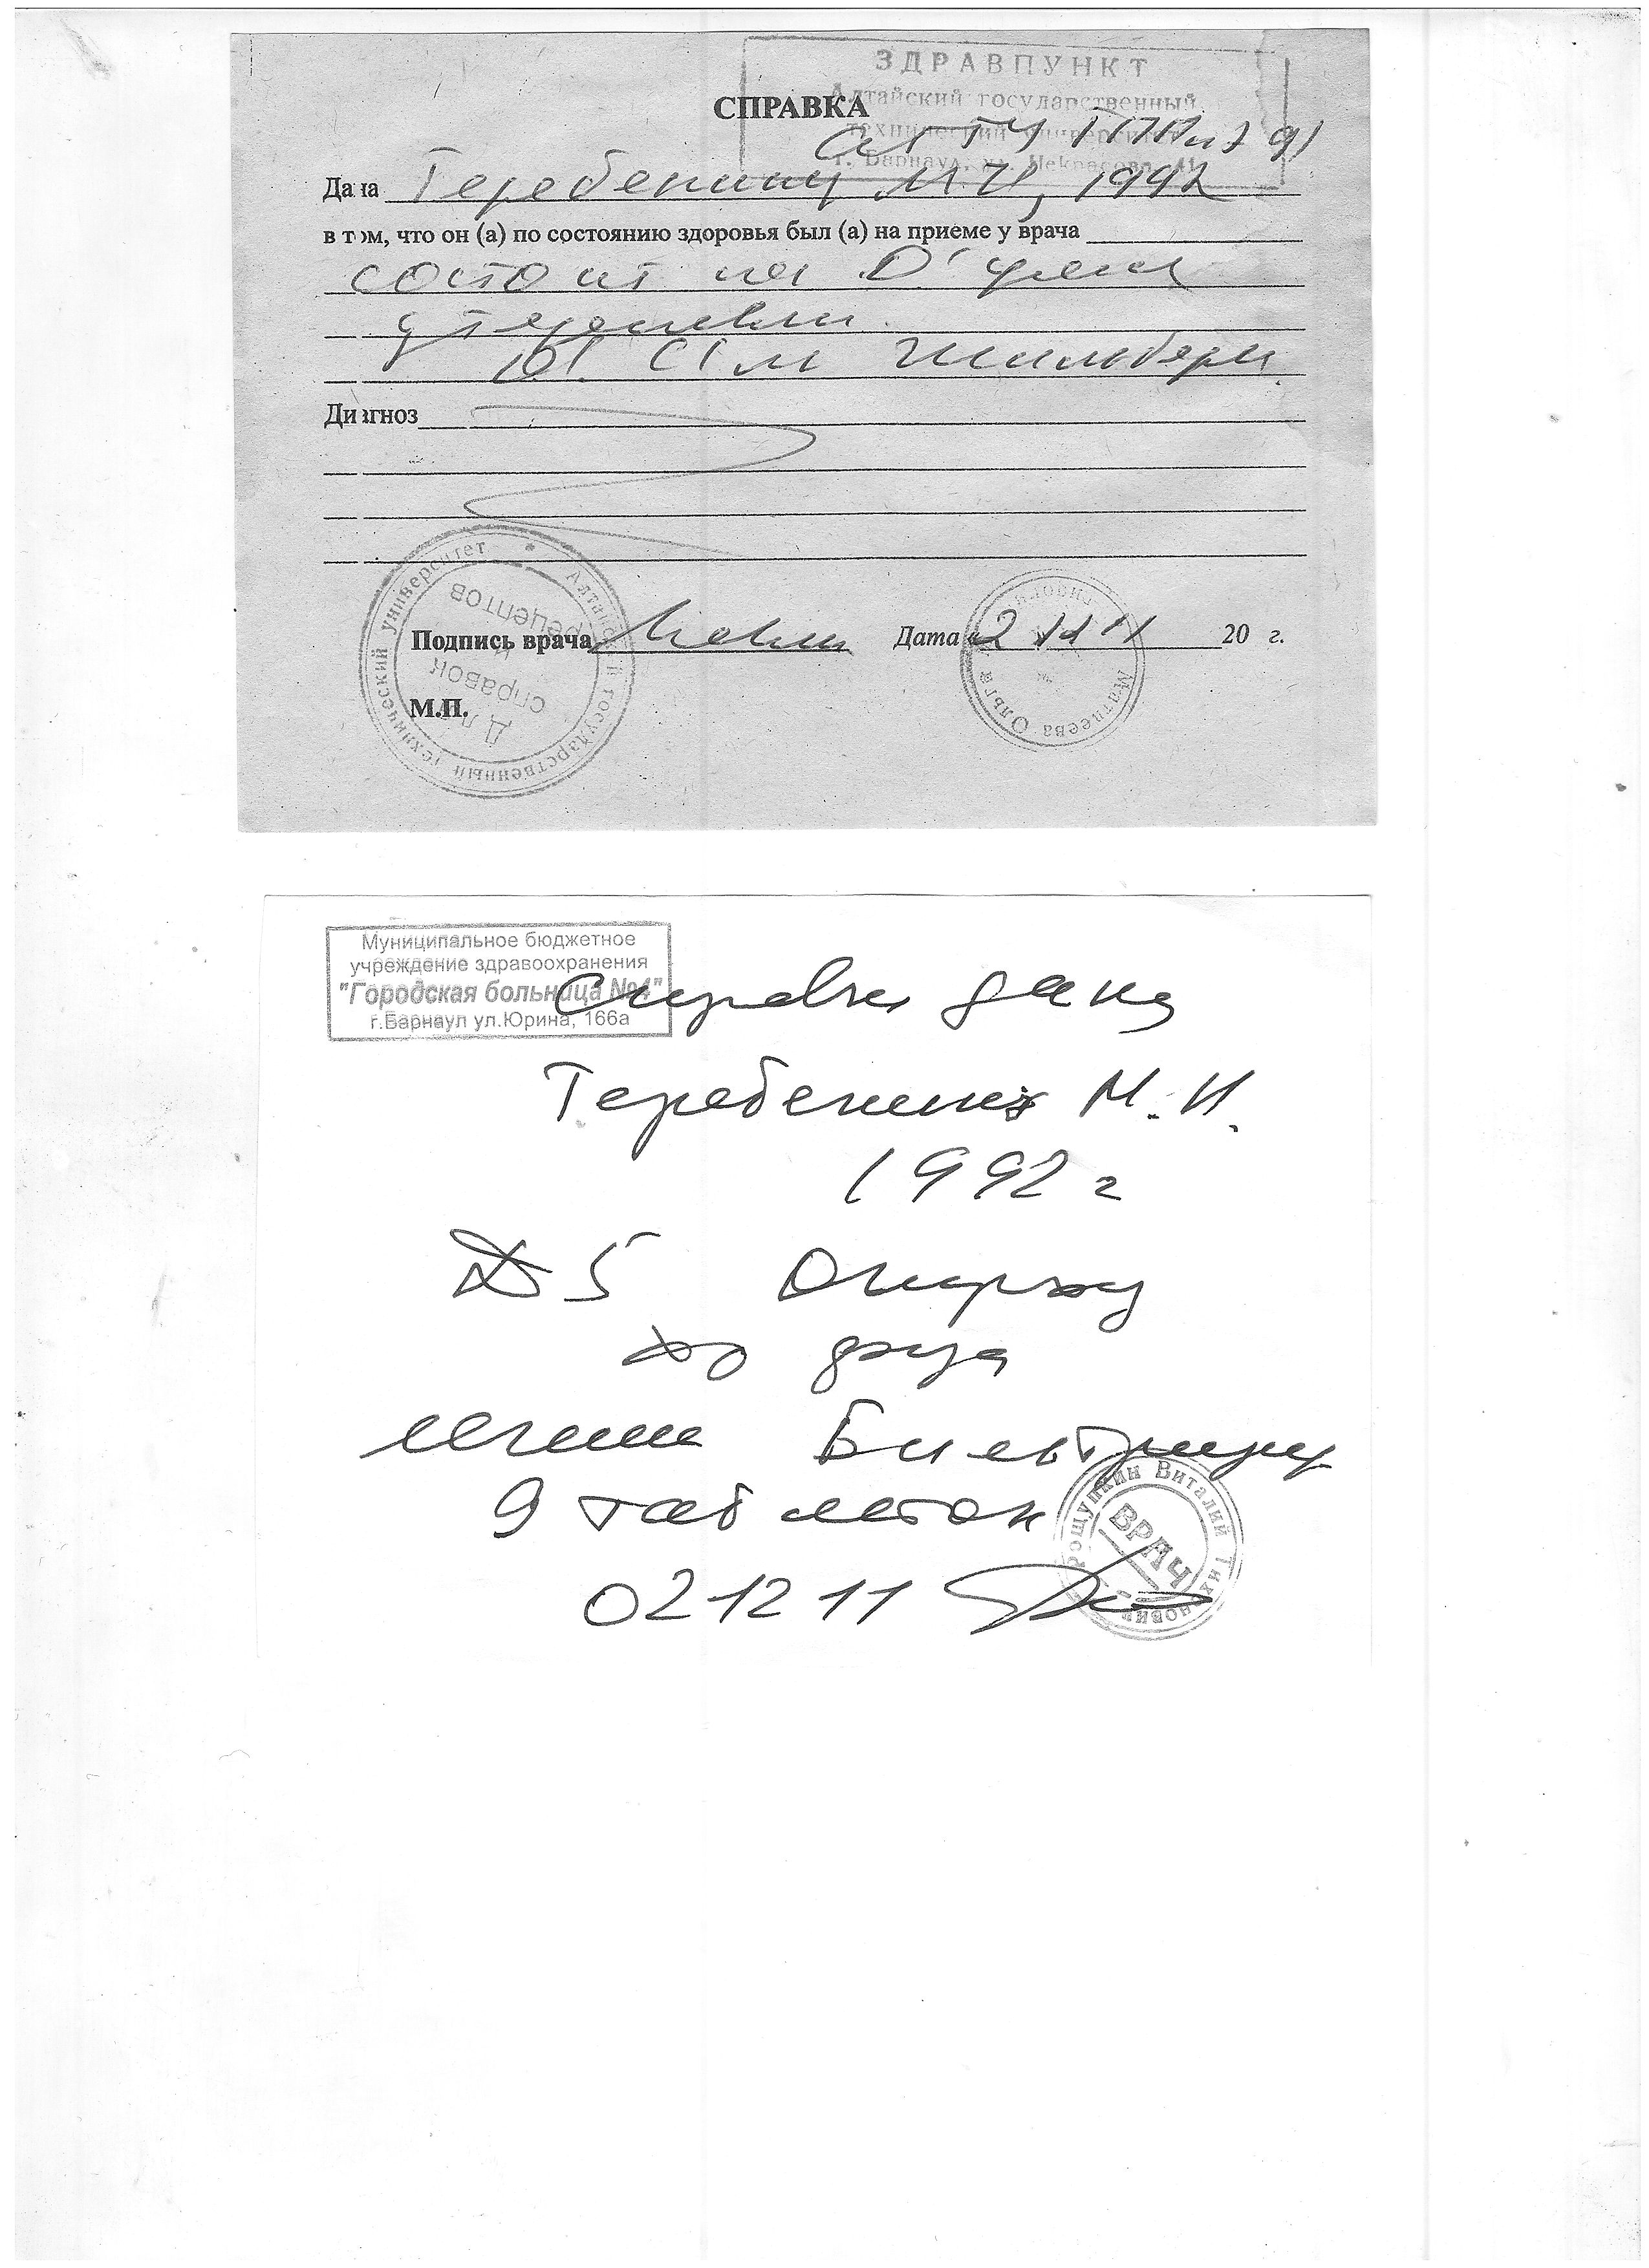 ЗДРАВПУНКТ
СПРАВКА
Алтайский государственный
технический университет
г. Барнаул, ул. Некрасова
АлтГТУ 91
Дана Теребенину М.И, 1992
в том, что он (а) по состоянию здоровья был (а) на приеме у врача
состоит на "Д" учете
у терапевта.
Ds: С-м Жильбера
Диагноз
Подпись врача Дата « 2 XII 11 20 г.
М.П.
Алтайский государственный технический университет
Для справок и рецептов
Матвеева Ольга
Муниципальное бюджетное
учреждение здравоохранения
"Городская больница №4"
г.Барнаул ул.Юрина, 166а
Справка дана
Теребенину М.И.
1992 г
DS Описторхоз
лечение Бильтрицид
9 таблеток
02 12 11
Рощупкин Виталий Тихонович
ВРАЧ